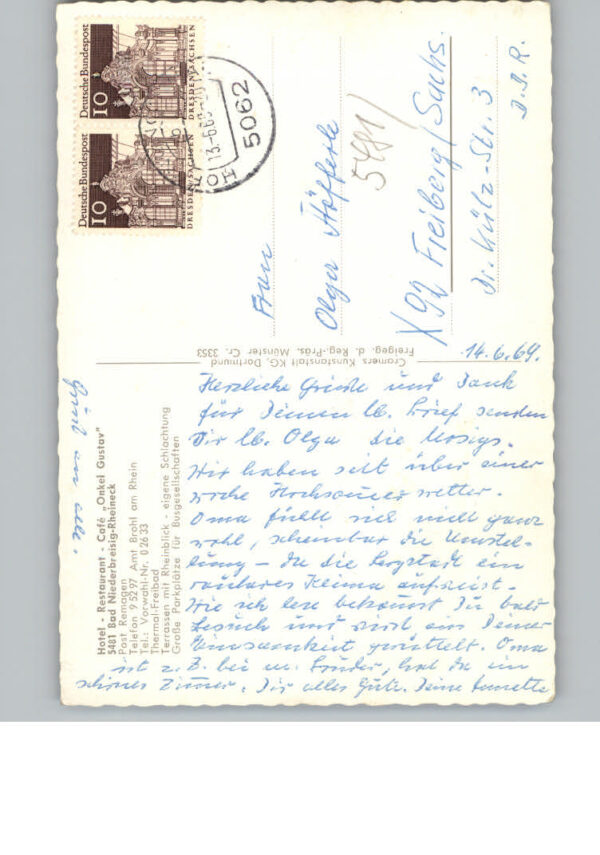 Deutsche Bundespost
10
DRESDEN/SACHSEN
Deutsche Bundespost
10
DRESDEN/SACHSEN
13.6.69
5062
Frau
Olga Höfferle
5481/
X92 Freiberg/Sachs.
Dr. Külz-Str. 3
D.D.R.
Cramers Kunstanstalt KG, Dortmund
Freigeg. d. Reg.-Präs. Münster Cr. 3353
Hotel - Restaurant - Café „Onkel Gustav"
5481 Bad Niederbreisig-Rheineck
Post Remagen
Telefon 9 52 97 Amt Brohl am Rhein
Tel.: Vorwahl-Nr. 0 26 33
Thermal-Freibad
Terrassen mit Rheinblick - eigene Schlachtung
Große Parkplätze für Busgesellschaften
14.6.69.
Herzliche Grüße und Dank
für Deinen lb. Brief senden
Dir lb. Olga die
Wir haben seit über einer
Woche Hochsommerwetter.
Oma fühlt sich nicht ganz
wohl, scheinbar die Umstel-
lung – da die Bergstadt ein
rauheres Klima aufweist.
Wie ich lese bekommst Du bald
Besuch und wirst aus Deiner
Einsamkeit gerüttelt. Oma
ist z. B. bei m. Bruder, hat da ein
schönes Zimmer. Dir alles Gute. Deine Annette
Gruß an alle.